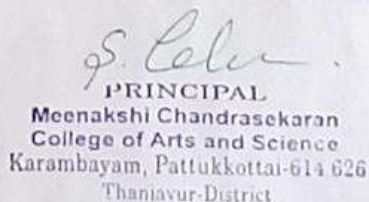 PRINCIPAL
Meenakshi Chandrasekaran
College of Arts and Science
Karambayam, Pattukkottai-614 626
Thanjavur-District